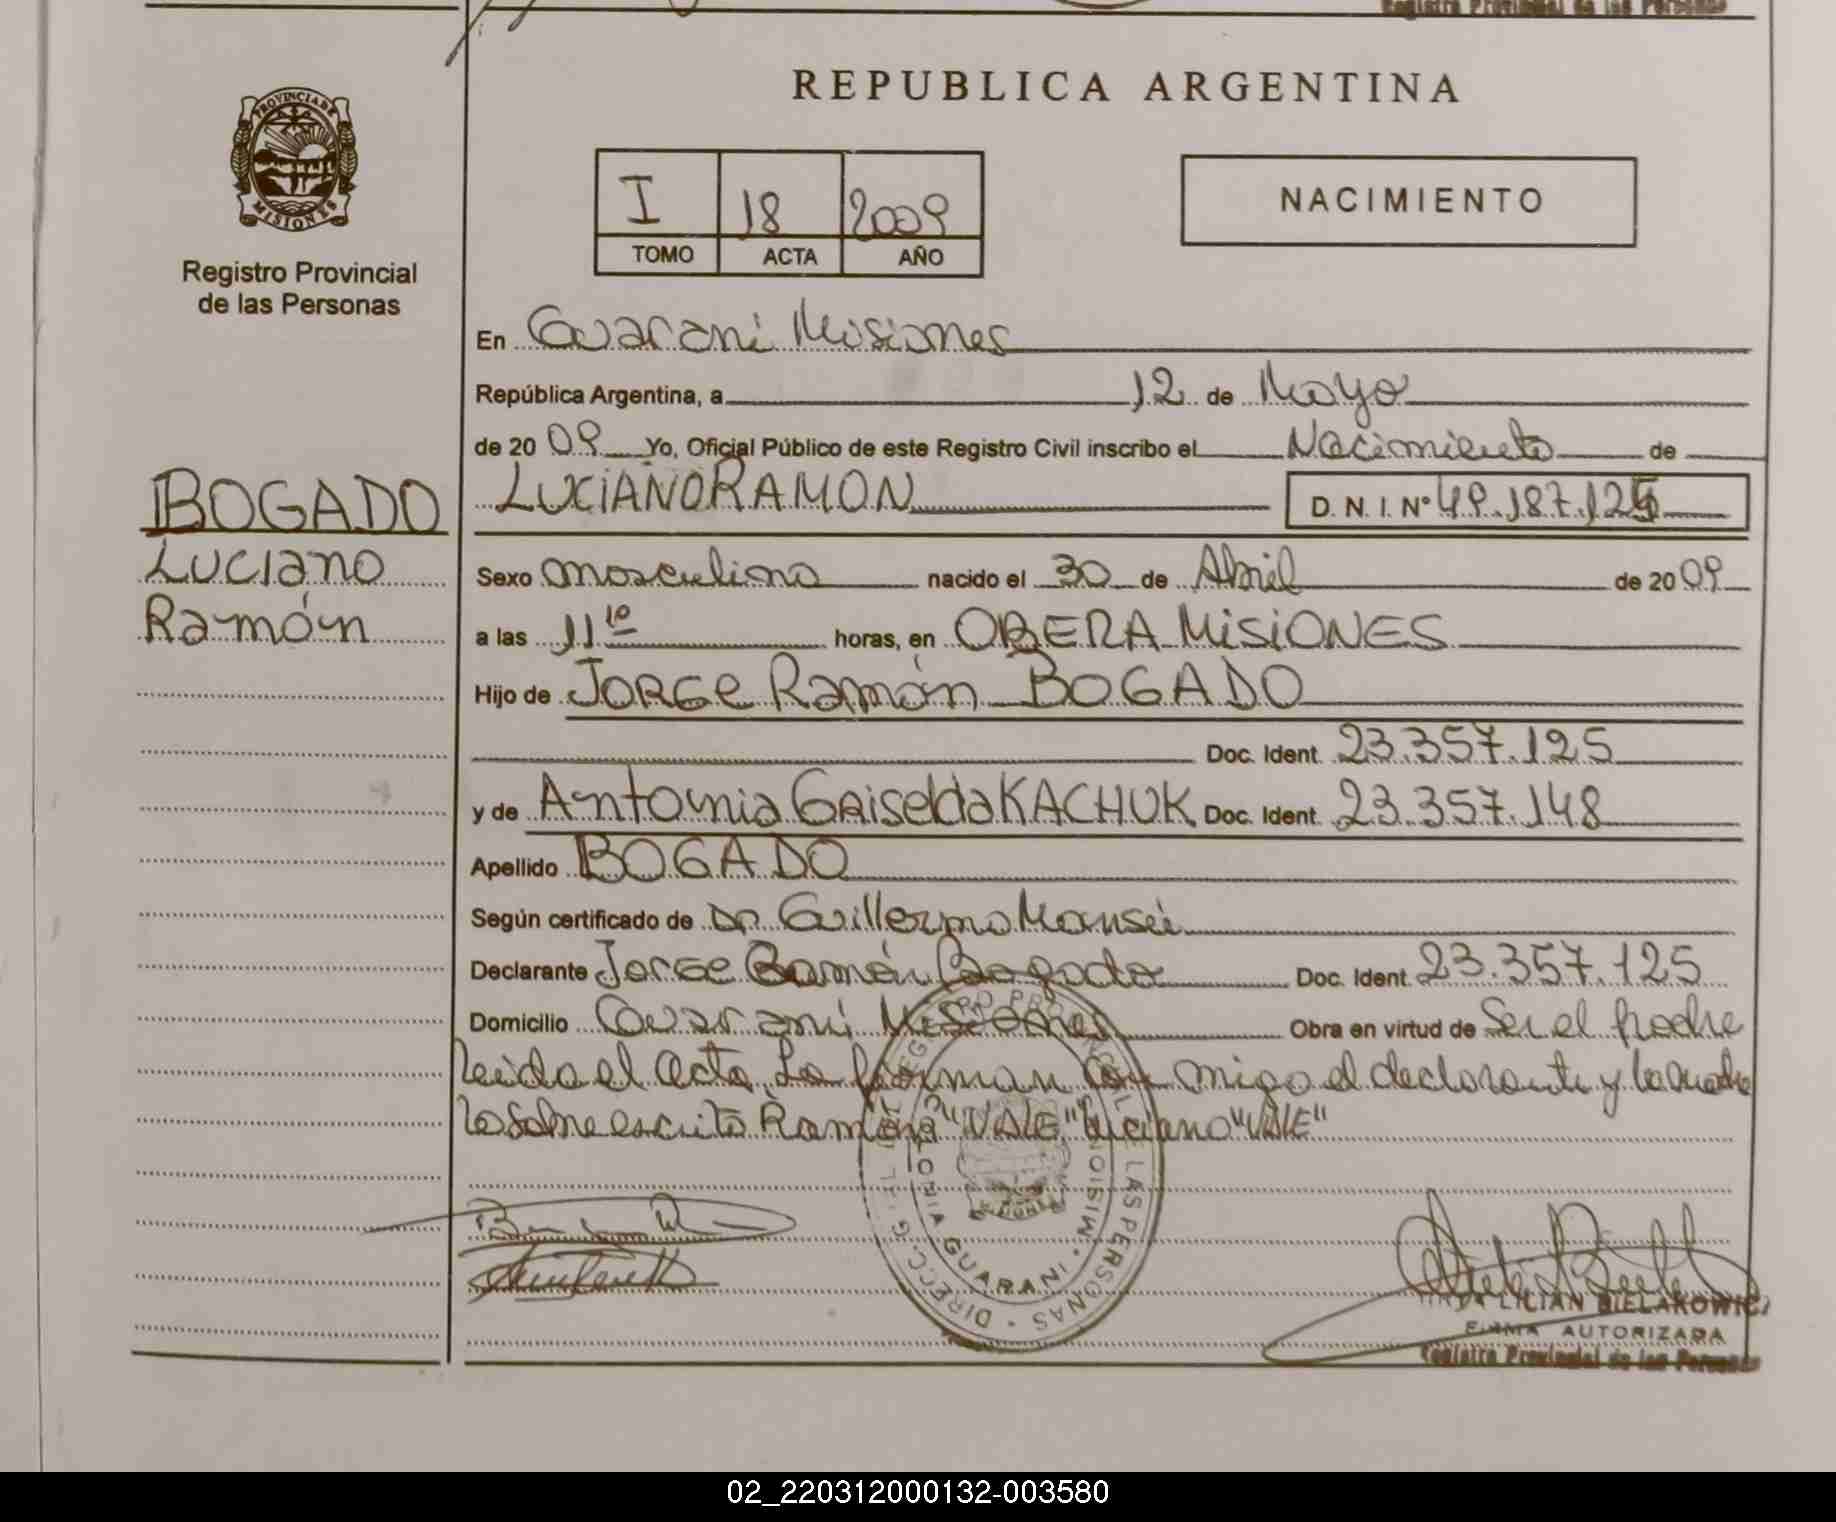 Registro Provincial de las Personas
REPUBLICA ARGENTINA
PROVINCIA DE
MISIONES
Registro Provincial
de las Personas
I 18 2009
TOMO ACTA AÑO
NACIMIENTO
En Guaraní Misiones
República Argentina, a 12 de Mayo
de 20 09 Yo, Oficial Público de este Registro Civil inscribo el Nacimiento de
BOGADO
Luciano
Ramón
LUCIANO RAMON D. N. I. Nº 49.187.125
Sexo masculino nacido el 30 de Abril de 20 09
a las 11 10 horas, en OBERA MISIONES
Hijo de JORGE Ramón BOGADO
Doc. Ident. 23.357.125
y de Antonia Griselda KACHUK Doc. Ident. 23.357.148
Apellido BOGADO
Según certificado de Dr. Guillermo
Declarante Jorge Ramón Bogado Doc. Ident. 23.357.125
Domicilio Guaraní Misiones Obra en virtud de Ser el Padre
leida el Acta La firman con migo el declarante y la Madre
lo sobre escrito Ramón "VALE" Luciano "VALE"
DIRECC. GRAL. DEL REGISTRO PROVINCIAL DE LAS PERSONAS
COLONIA GUARANI · MISIONES
LILIAN BIELAKOWICZ
FIRMA AUTORIZADA
Registro Provincial de las Personas
02_220312000132-003580